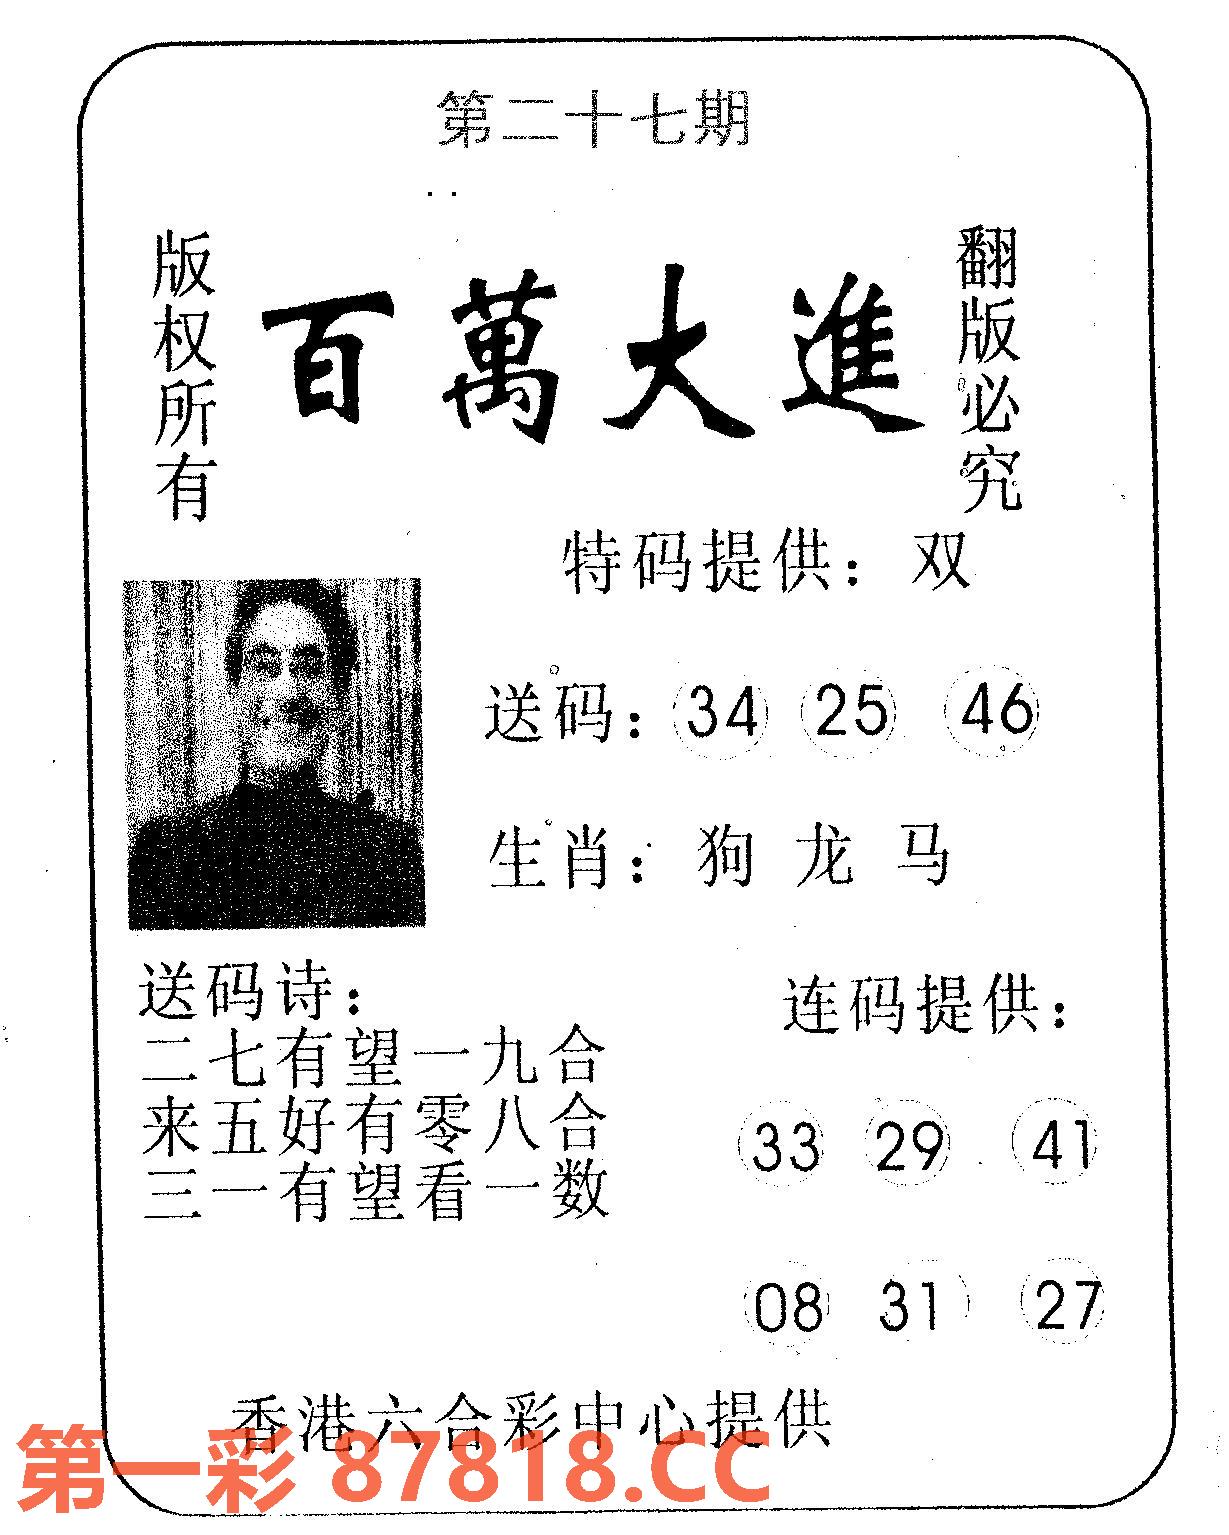 第二十七期
版权所有
百萬大進
翻版必究
特码提供：双
送码：34 25 46
生肖：狗 龙 马
送码诗：
二七有望一九合
来五好有零八合
三一有望看一数
连码提供：
33 29 41
08 31 27
香港六合彩中心提供
第一彩 87818.CC